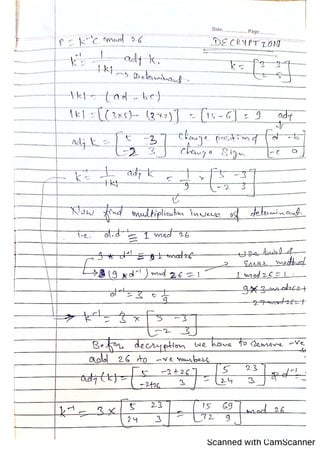 Date Page
DECRYPTION
P = k⁻¹C mod 26
k⁻¹ = 1/|k| adj k. k = [3 3; 2 5]
→ Determinant.
|k| = (ad - bc)
|k| = [(3x5) - (2x3)] = [15-6] = 9 adj
adj k = [5 -3; -2 3] Change position of [d -b; -c a]
Change Sign
k⁻¹ = 1/|k| adj k = 1/9 x [5 -3; -2 3]
Now find multiplicative inverse of determinant.
i.e. d.d⁻¹ ≡ 1 mod 26
9 * d⁻¹ ≡ 1 mod 26 Use trial & Error method
(9 * d⁻¹) mod 26 = 1 1 mod 26 = 1
d⁻¹ = 3 = 1/9 9x3 mod 26 = 1
27 mod 26 = 1
→ k⁻¹ = 3 x [5 -3; -2 3]
Before decryption we have to remove -ve
add 26 to -ve numbers
adj(k) = [5 -3+26; -2+26 3] = [5 23; 24 3] d⁻¹ =
k⁻¹ = 3 x [5 23; 24 3] = [15 69; 72 9] mod 26
Scanned with CamScanner